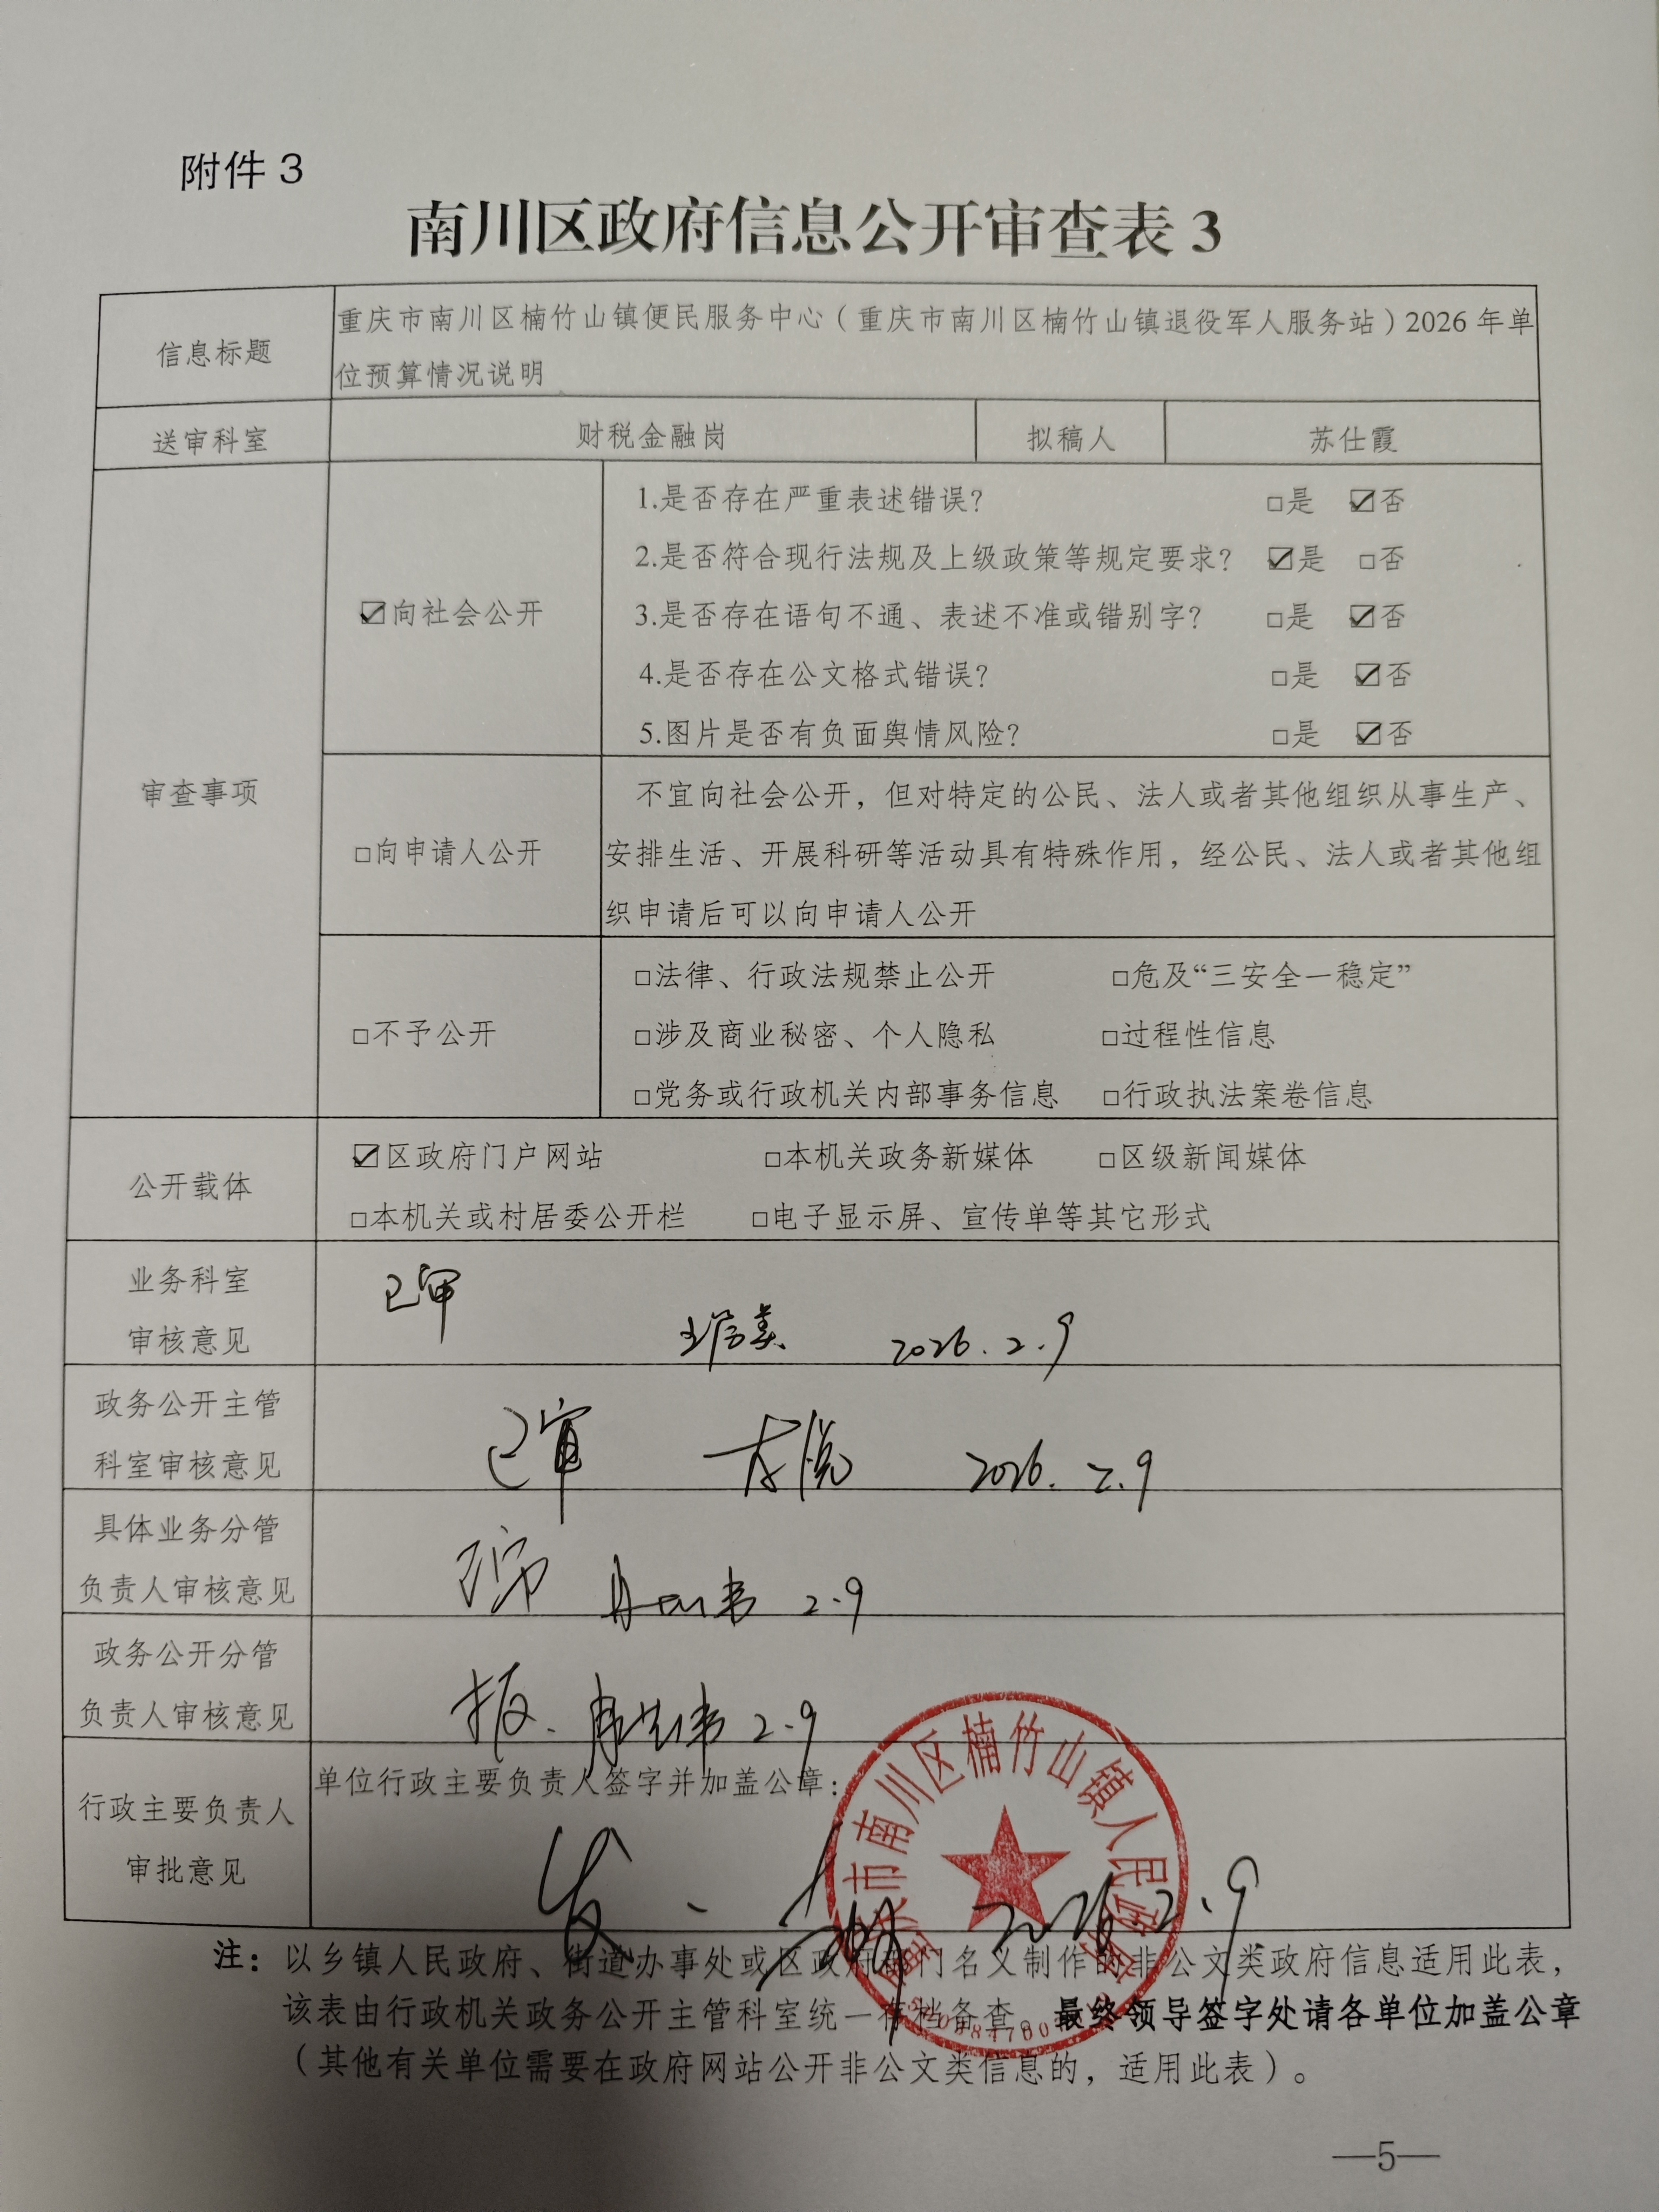 附件3
南川区政府信息公开审查表3
信息标题
重庆市南川区楠竹山镇便民服务中心（重庆市南川区楠竹山镇退役军人服务站）2026年单
位预算情况说明
送审科室 财税金融岗 拟稿人 苏仕霞
审查事项
☑向社会公开
1.是否存在严重表述错误？ □是 ☑否
2.是否符合现行法规及上级政策等规定要求？ ☑是 □否
3.是否存在语句不通、表述不准或错别字？ □是 ☑否
4.是否存在公文格式错误？ □是 ☑否
5.图片是否有负面舆情风险？ □是 ☑否
□向申请人公开
不宜向社会公开，但对特定的公民、法人或者其他组织从事生产、
安排生活、开展科研等活动具有特殊作用，经公民、法人或者其他组
织申请后可以向申请人公开
□不予公开
□法律、行政法规禁止公开 □危及“三安全一稳定”
□涉及商业秘密、个人隐私 □过程性信息
□党务或行政机关内部事务信息 □行政执法案卷信息
公开载体
☑区政府门户网站 □本机关政务新媒体 □区级新闻媒体
□本机关或村居委公开栏 □电子显示屏、宣传单等其它形式
业务科室
审核意见
已审 2026.2.9
政务公开主管
科室审核意见
已审 2026.2.9
具体业务分管
负责人审核意见
2.9
政务公开分管
负责人审核意见
2.9
行政主要负责人
审批意见
单位行政主要负责人签字并加盖公章：
发、 2026.2.9
重庆市南川区楠竹山镇人民政府
注：以乡镇人民政府、街道办事处或区政府部门名义制作的非公文类政府信息适用此表，
该表由行政机关政务公开主管科室统一存档备查。最终领导签字处请各单位加盖公章
（其他有关单位需要在政府网站公开非公文类信息的，适用此表）。
—5—